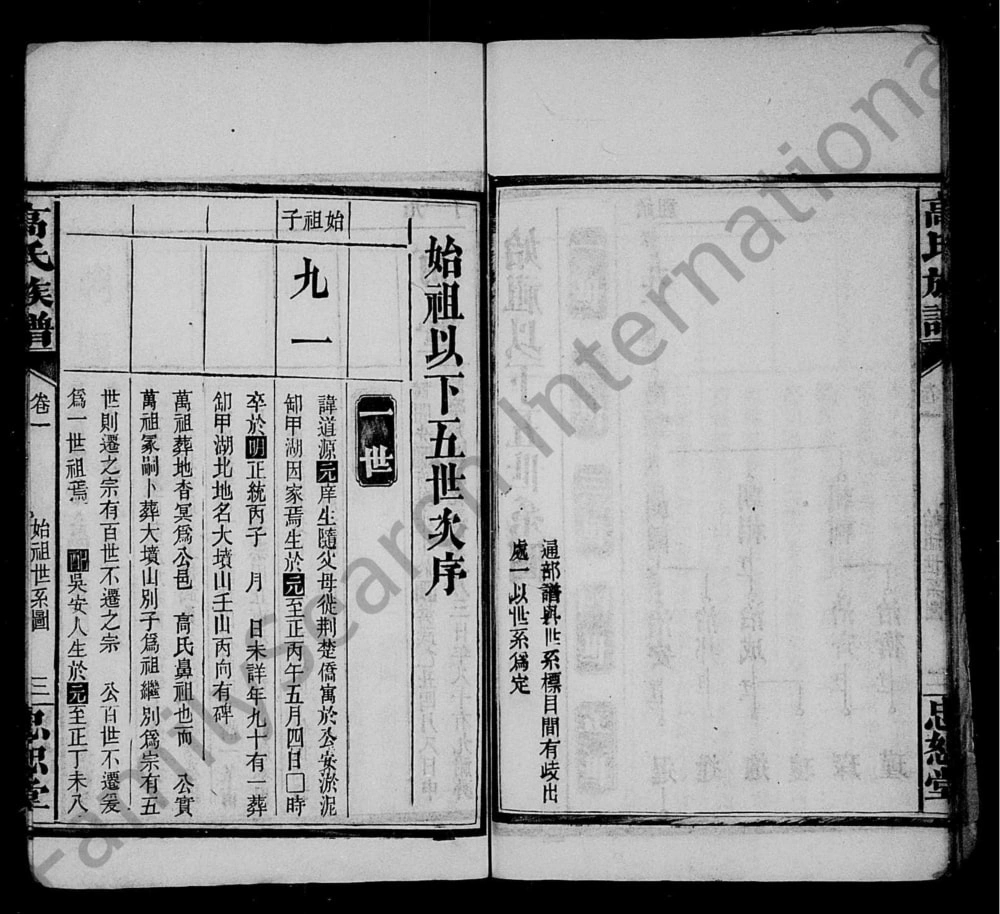 高氏族譜
卷一
思恕堂
通部譜與世系標目間有歧出
處一以世系為定
始祖以下五世次序
一世
始祖子
九一
諱道源元庠生隨父母徙荆楚僑寓於公安淤泥
卸甲湖因家焉生於元至正丙午五月四日□時
卒於明正統丙子 月 日未詳年九十有一葬
卸甲湖北地名大墳山壬山丙向有碑
萬祖葬地杳冥爲公邑 高氏鼻祖也而 公實
萬祖冢嗣卜葬大墳山別子爲祖繼別爲宗有五
世則遷之宗有百世不遷之宗 公百世不遷爰
爲一世祖焉 配吳安人生於元至正丁未八
高氏族譜
卷一
始祖世系圖
三
思恕堂
FamilySearch International